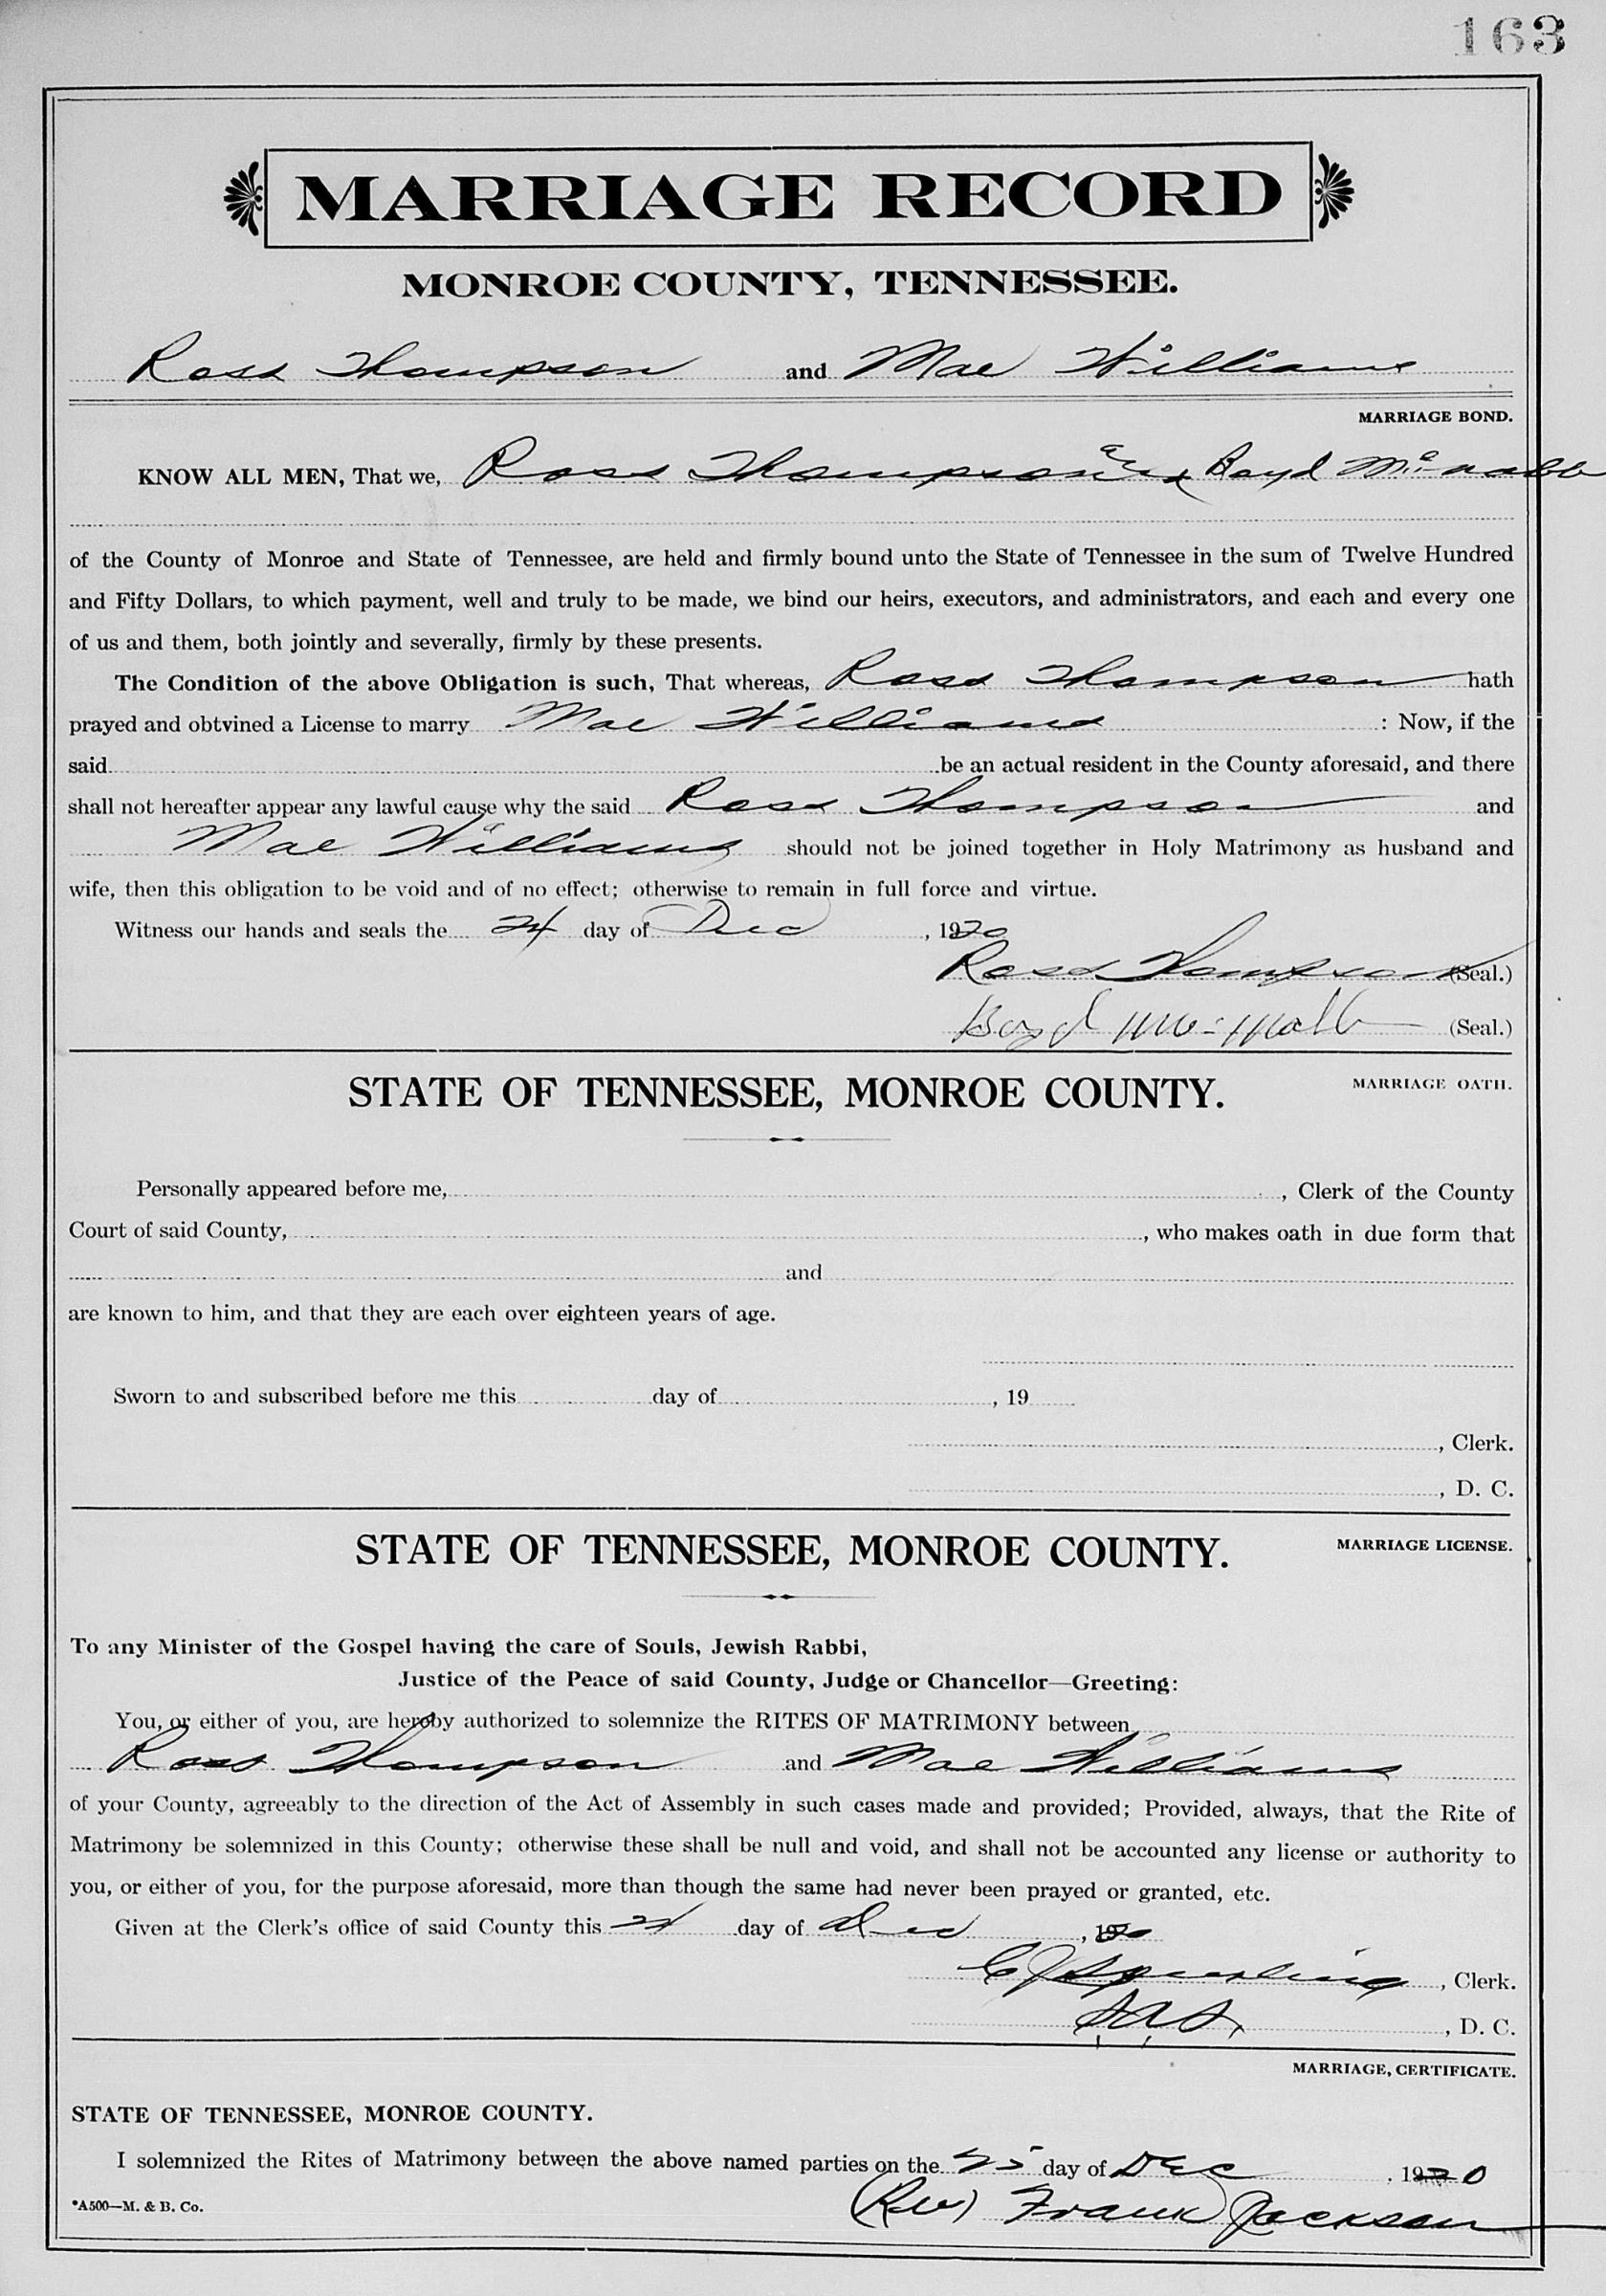 163
MARRIAGE RECORD
MONROE COUNTY, TENNESSEE.
Ross Thompson and Mae Williams
MARRIAGE BOND.
KNOW ALL MEN, That we, Ross Thompson and Boyd Mc-nabb
of the County of Monroe and State of Tennessee, are held and firmly bound unto the State of Tennessee in the sum of Twelve Hundred
and Fifty Dollars, to which payment, well and truly to be made, we bind our heirs, executors, and administrators, and each and every one
of us and them, both jointly and severally, firmly by these presents.
The Condition of the above Obligation is such, That whereas, Ross Thompson hath
prayed and obtvined a License to marry Mae Williams : Now, if the
said be an actual resident in the County aforesaid, and there
shall not hereafter appear any lawful cause why the said Ross Thompson and
Mae Williams should not be joined together in Holy Matrimony as husband and
wife, then this obligation to be void and of no effect; otherwise to remain in full force and virtue.
Witness our hands and seals the 24 day of Dec , 1920
Ross Thompson (Seal.)
Boyd Mc-Nabb (Seal.)
STATE OF TENNESSEE, MONROE COUNTY. MARRIAGE OATH.
Personally appeared before me, , Clerk of the County
Court of said County, , who makes oath in due form that
and
are known to him, and that they are each over eighteen years of age.
Sworn to and subscribed before me this day of , 19
, Clerk.
, D. C.
STATE OF TENNESSEE, MONROE COUNTY. MARRIAGE LICENSE.
To any Minister of the Gospel having the care of Souls, Jewish Rabbi,
Justice of the Peace of said County, Judge or Chancellor—Greeting:
You, or either of you, are hereby authorized to solemnize the RITES OF MATRIMONY between
Ross Thompson and Mae Williams
of your County, agreeably to the direction of the Act of Assembly in such cases made and provided; Provided, always, that the Rite of
Matrimony be solemnized in this County; otherwise these shall be null and void, and shall not be accounted any license or authority to
you, or either of you, for the purpose aforesaid, more than though the same had never been prayed or granted, etc.
Given at the Clerk's office of said County this 24 day of Dec , 1920
, Clerk.
, D. C.
MARRIAGE, CERTIFICATE.
STATE OF TENNESSEE, MONROE COUNTY.
I solemnized the Rites of Matrimony between the above named parties on the 25 day of Dec . 1920
*A500—M. & B. Co. (Rev) Frank Jackson